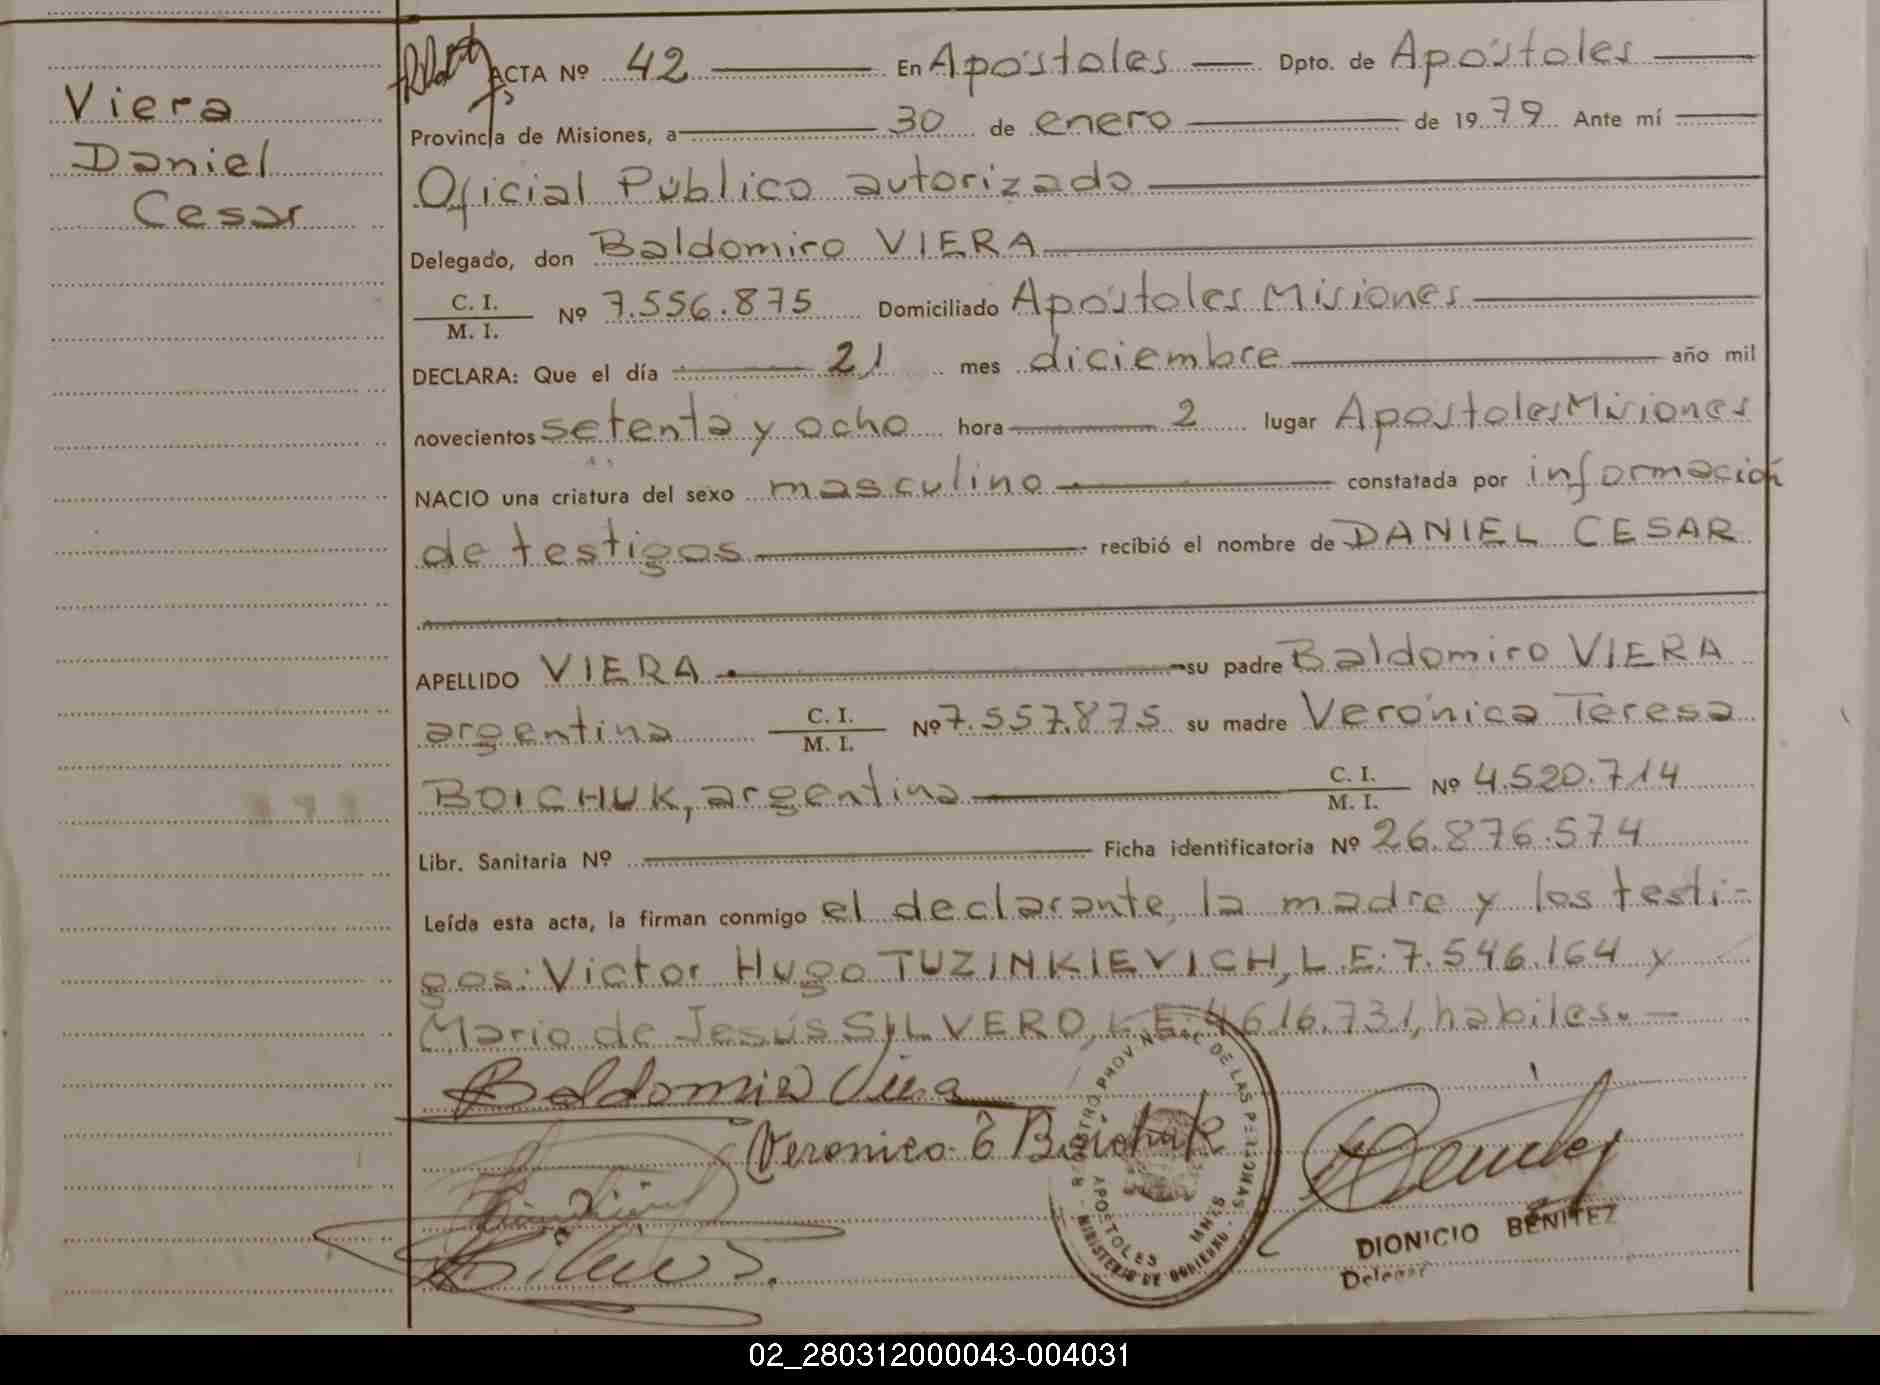 Viera
Daniel
Cesar
ACTA Nº 42 En Apóstoles Dpto. de Apóstoles
Provincia de Misiones, a 30 de enero de 1979 Ante mí
Oficial Público autorizado
Delegado, don Baldomiro VIERA
C. I.
M. I. Nº 7.556.875 Domiciliado Apóstoles Misiones
DECLARA: Que el día 21 mes diciembre año mil
novecientos setenta y ocho hora 2 lugar Apóstoles Misiones
NACIO una criatura del sexo masculino constatada por información
de testigos recibió el nombre de DANIEL CESAR
APELLIDO VIERA su padre Baldomiro VIERA
argentina C. I.
M. I. Nº 7.557.875 su madre Verónica Teresa
BOICHUK, argentina C. I.
M. I. Nº 4.520.714
Libr. Sanitaria Nº Ficha identificatoria Nº 26.876.574
Leída esta acta, la firman conmigo el declarante, la madre y los testi-
gos: Victor Hugo TUZINKIEVICH, L.E: 7.546.164 y
Mario de Jesús SILVERO, L.E 4616.731, habiles.-
Baldomiro Viera
Veronica T Boichuk
REGISTRO PROVINCIAL DE LAS PERSONAS
APOSTOLES MNES
MINISTERIO DE GOBIERNO
DIONICIO BENITEZ
Delegado
02_280312000043-004031